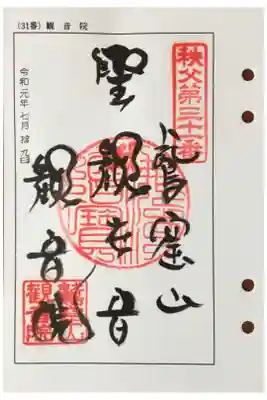 (31番) 観 音 院
秩父第三十一番
鷲窟山
聖観世音
観音院
令和元年 七月 拾九日